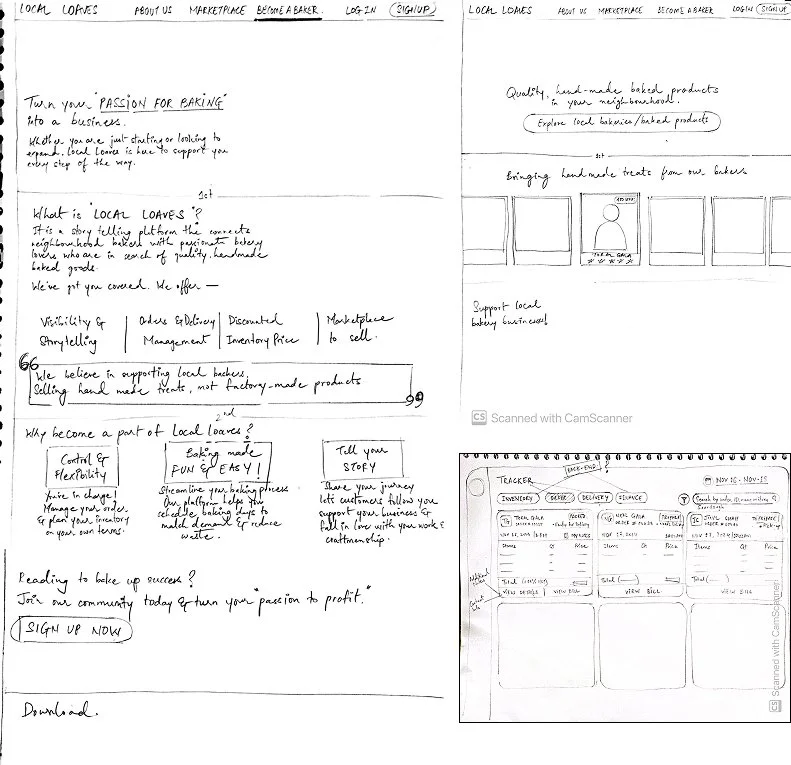 LOCAL LOAVES ABOUT US MARKETPLACE BECOME A BAKER. LOG IN SIGN UP
Turn your "PASSION FOR BAKING"
into a business.
Whether you are just starting or looking to
expand. Local Loaves is here to support you
every step of the way.
1st
What is "LOCAL LOAVES"?
It is a story telling platform the connects
neighbourhood bakers with passionate bakery
lovers who are in search of quality, handmade
baked goods.
We've got you covered. We offer —
Visibility & Storytelling
Orders & Delivery Management
Discounted Inventory Price
Marketplace to sell.
66
We believe in supporting local bakers.
Selling hand made treats, not factory-made products
99
2nd
Why become a part of Local Loaves?
Control & Flexibility
You're in charge!
Manage your order,
& plan your inventory
on your own terms.
Baking made FUN & EASY!
Streamline your baking process
Our platform helps you
schedule baking days to
match demand & reduce
waste.
Tell your STORY
Share your journey
lets customers follow you
support your business &
fall in love with your work &
craftmanship.
Reading to bake up success?
Join our community today & turn your "passion to profit."
SIGN UP NOW
Download.
LOCAL LOAVES ABOUT US MARKETPLACE BECOME A BAKER LOG IN SIGN UP
Quality, hand-made baked products
in your neighbourhood.
Explore local bakeries/baked products
1st
Bringing handmade treats from our bakers
TORAL GALA
Support local
bakery business!
CS Scanned with CamScanner
BACK-END?
TRACKER
NOV 15 - NOV 15
INVENTORY ORDER DELIVERY FINANCE
TORAL GALA
Items Qt Price
Total
VIEW DETAILS VIEW BILL
NEAL GALA
Items Qt Price
Total
VIEW BILL
Items Qt Price
Total
VIEW BILL
CS Scanned with CamScanner